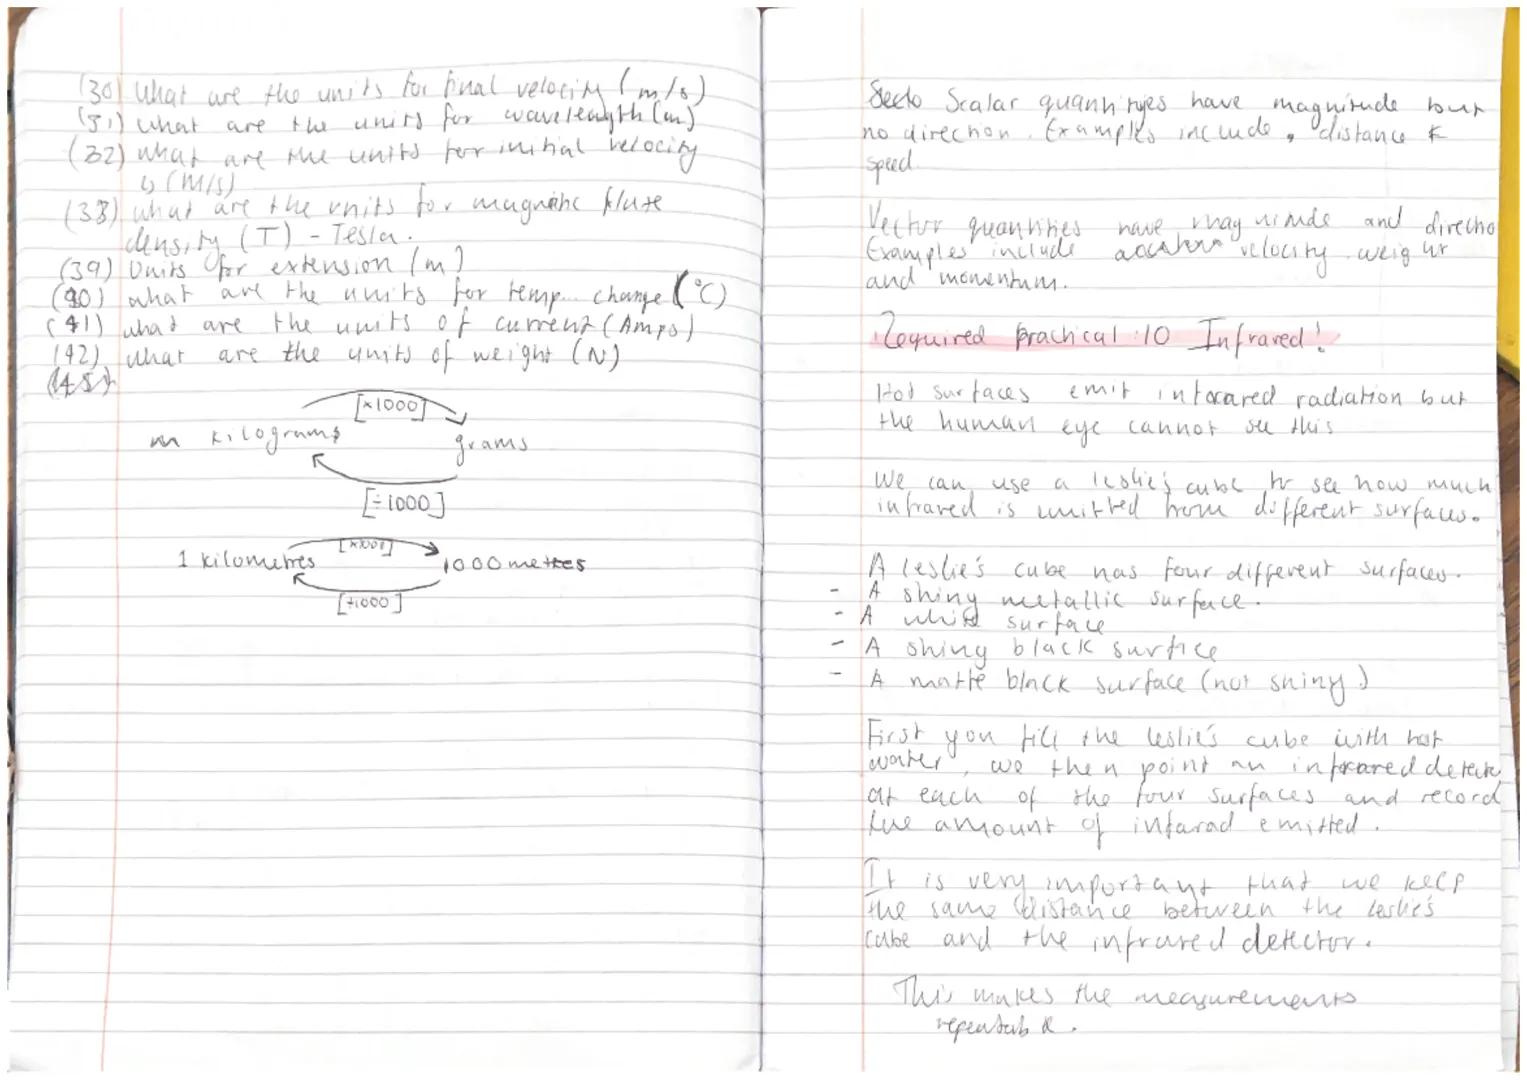 (30) What are the units for final velocity (m/s)
(31) what are the units for wavelength (m)
(32) what are the units for initial velocity
↳ (m/s)
(33) what are the units for magnetic fluxe
density (T) - Tesla.
(39) Units for extension (m)
(40) what are the units for temp... change (°C)
(41) what are the units of current (Amps)
(42) what are the units of weight (N)
[×1000]
m kilograms grams
[÷1000]
[×1000]
1 kilometres 1000 metres
[÷1000]
Scalar quantityes have magnitude but
no direction. Examples include, distance &
speed.
Vector quantities have magnitude and directio
Examples include velocity weight
and momentum.
Required practical:10 Infrared!
Hot surfaces emit infrared radiation but
the human eye cannot see this
We can use a leslie's cube to see how much
infrared is emitted from different surfaces.
A leslie's cube has four different surfaces.
- A shiny metallic surface.
- A white surface
- A shiny black surface
- A matte black surface (not shiny)
First you fill the leslie's cube with hot
water, we then point an infrared detecto
at each of the four surfaces and record
the amount of infarad emitted.
It is very important that we keep
the same distance between the leslie's
cube and the infrared detector.
This makes the measurements
repeatable.